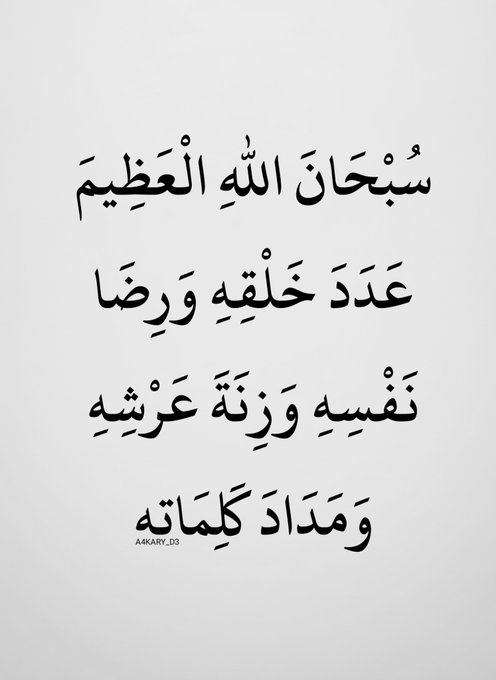 سُبْحَانَ اللهِ الْعَظِيمَ
عَدَدَ خَلْقِهِ وَرِضَا
نَفْسِهِ وَزِنَةَ عَرْشِهِ
وَمَدَادَ كَلِمَاته
A4KARY_D3